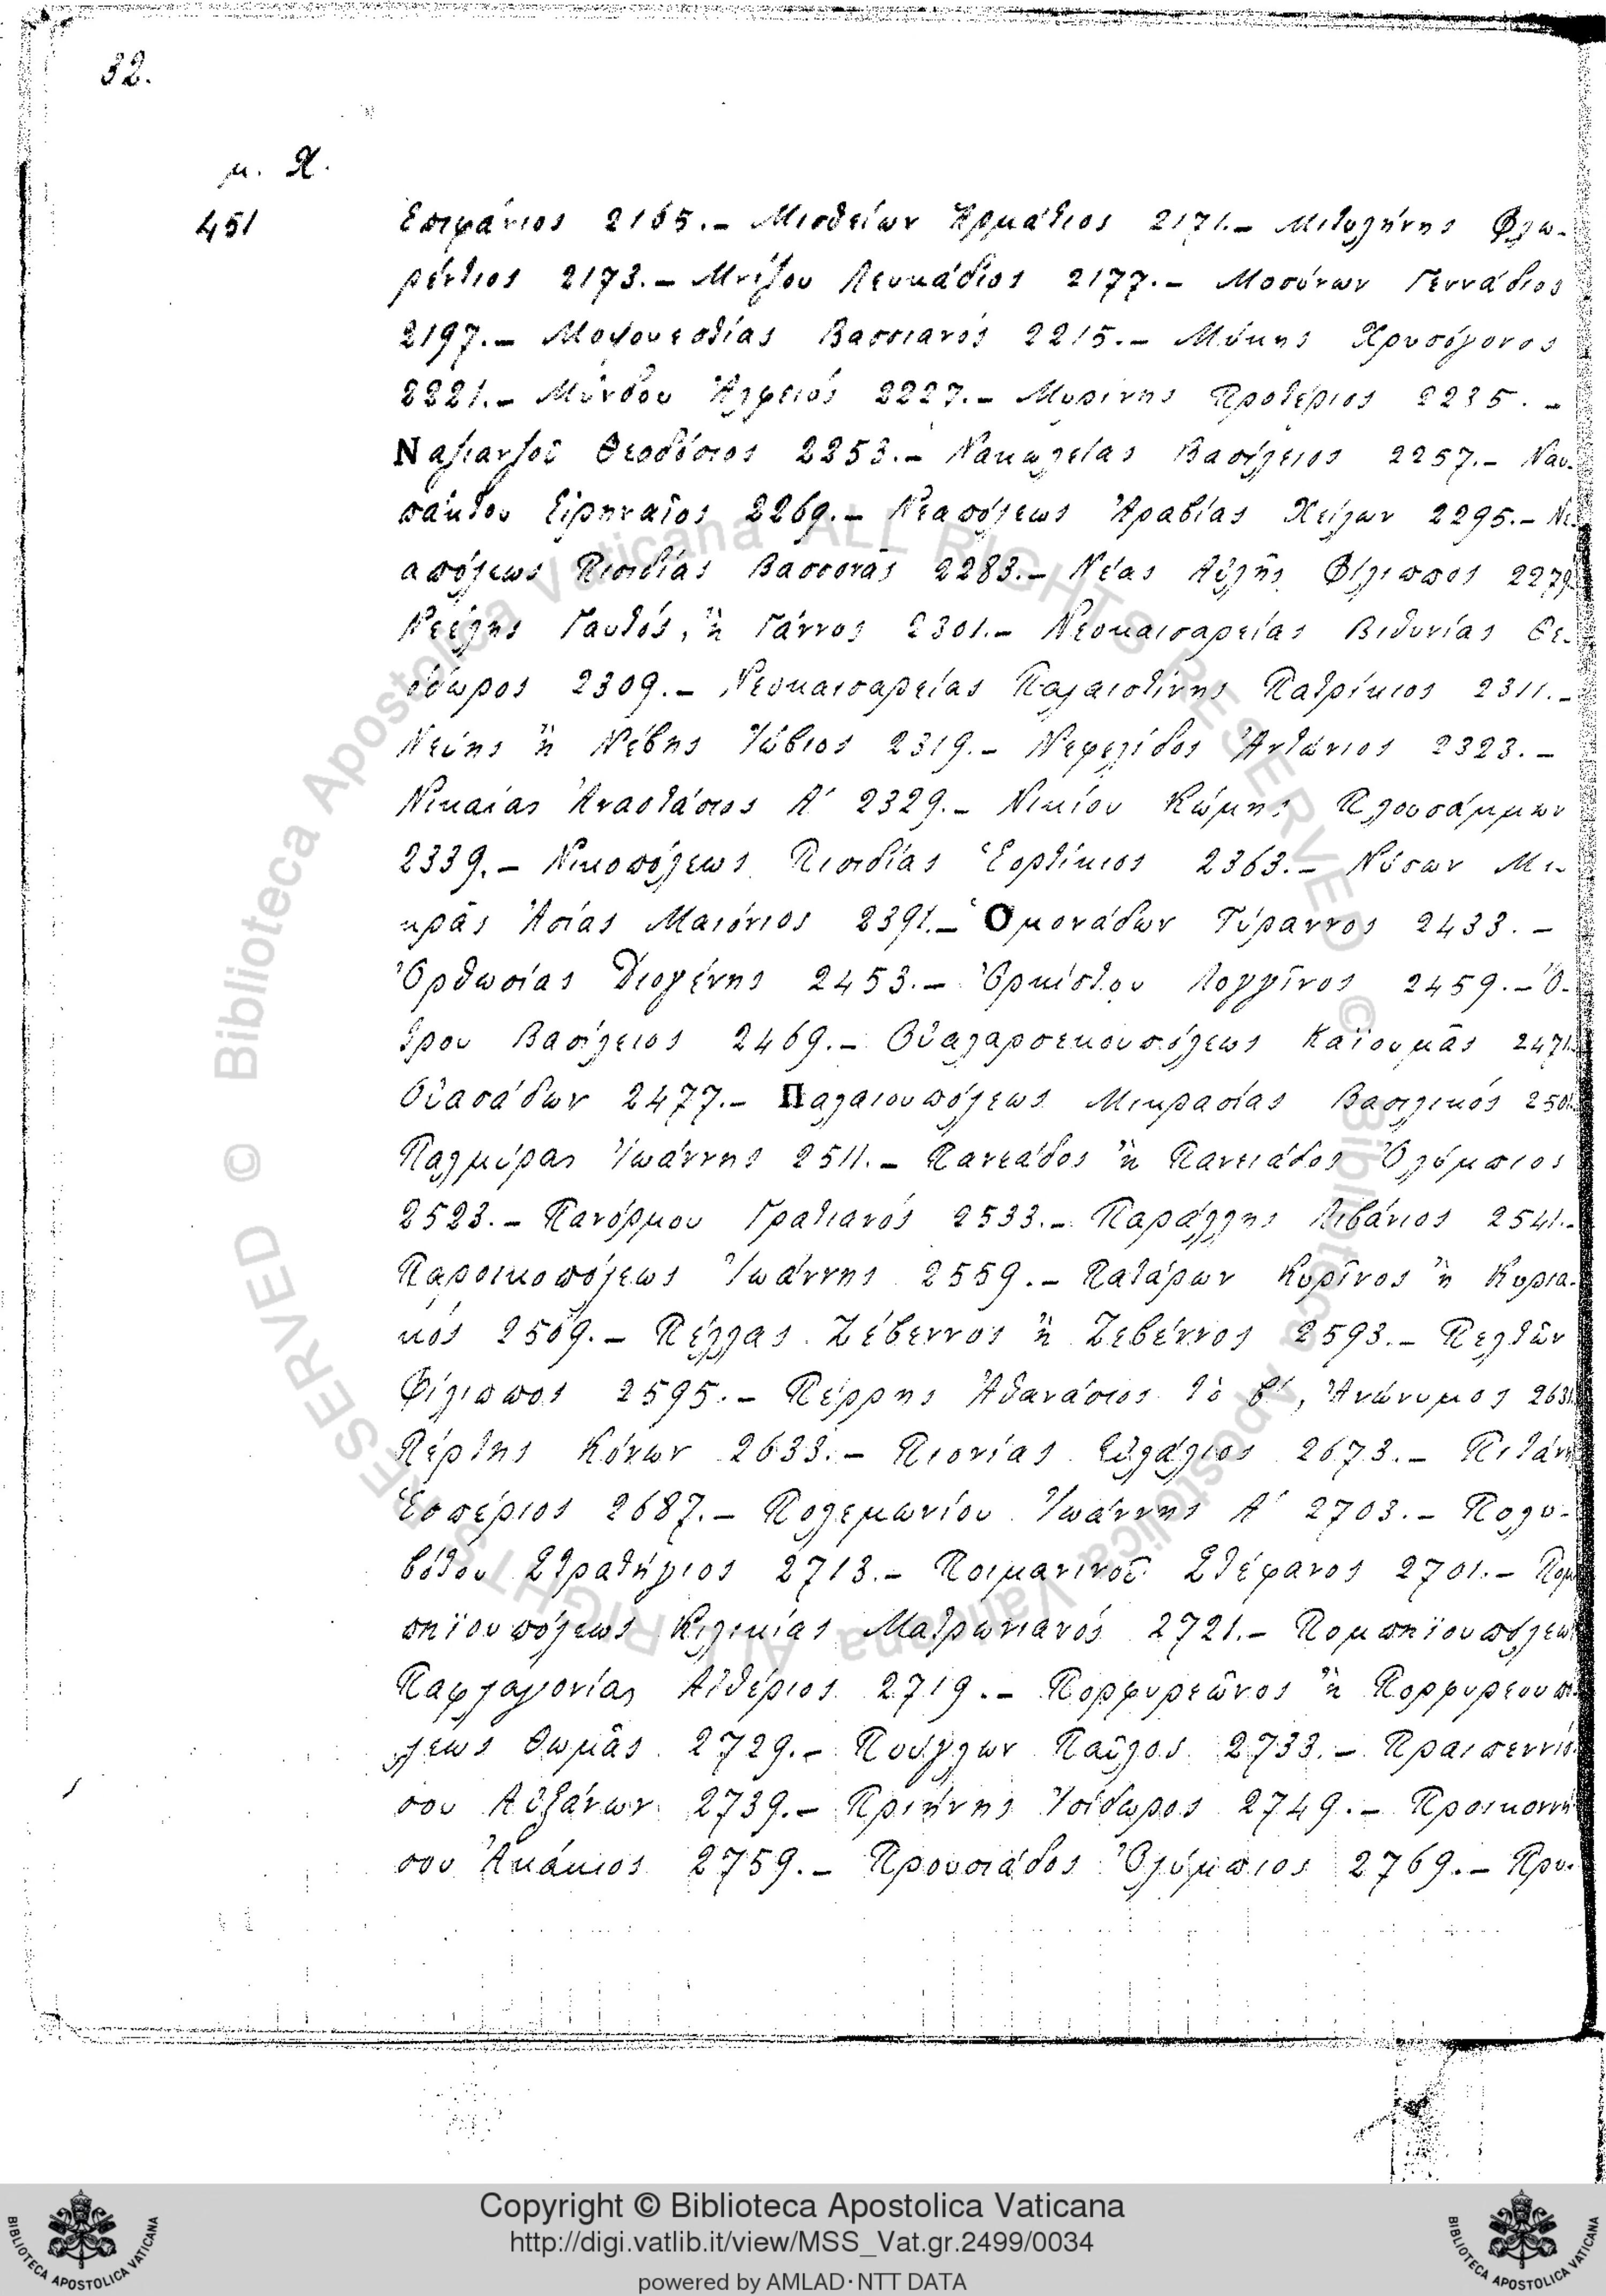 32.
μ. Χ.
451 Ἐπιφάνιος 2165.– Μισθείων Ἀρμάτιος 2171.– Μιτυλήνης Φλω-
ρέντιος 2173.– Μνίζου Λευκάδιος 2177.– Μοσύνων Γεννάδιος
2197.– Μοψουεστίας Βασσιανός 2215.– Μύκης Χρυσόγονος
2221.– Μύνδου Ἀλφειός 2227.– Μυρίνης Προτέριος 2235.–
Ναζιανζοῦ Θεοδόσιος 2253.– Νακωλείας Βασίλειος 2257.– Ναυ-
πάκτου Εἰρηναῖος 2269.– Νεαπόλεως Ἀραβίας Χείλων 2295.– Νε-
απόλεως Πισιδίας Βασσονᾶς 2283.– Νέας Αὐλῆς Φίλιππος 2279
Νεέλης Γαυτός, ἢ Γάννος 2301.– Νεοκαισαρείας Βιθυνίας Θε-
όδωρος 2309.– Νεοκαισαρείας Παλαιστίνης Πατρίκιος 2311.–
Νεύης ἢ Νέβης Ἰώβιος 2319.– Νεφελίδος Ἀντώνιος 2323.–
Νικαίας Ἀναστάσιος Α΄ 2329.– Νικίου Κώμης Πλουσάμμων
2339.– Νικοπόλεως Πισιδίας Ἑορτίκιος 2363.– Νύσων Μι-
κρᾶς Ἀσίας Μαιόνιος 2391.– Ὁμονάδων Τύραννος 2433.–
Ὀρθωσίας Διογένης 2453.– Ὀρκίστου Λογγῖνος 2459.– Ὄ-
τρου Βασίλειος 2469.– Οὐαλαρσεκουπόλεως Καϊουμᾶς 2471.
Οὐασάδων 2477.– Παλαιουπόλεως Μικρασίας Βασιλικός 2501.
Παλμύρας Ἰωάννης 2511.– Πανεάδος ἢ Πανειάδος Ὀλύμπιος
2523.– Πανόρμου Γρατιανός 2533.– Παράλλης Λιβάνιος 2541.–
Παροικοπόλεως Ἰωάννης 2559.– Πατάρων Κυρῖνος ἢ Κυρια-
κός 2569.– Πέλλας Ζέβεννος ἢ Ζεβέννος 2593.– Πελτῶν
Φίλιππος 2595.– Πέρρης Ἀθανάσιος τὸ β΄, Ἀνώνυμος 2631
Πέρτης Κόνων 2633.– Πιονίας Εὐλάλιος 2673.– Πιτάνη
Ἑσπέριος 2687.– Πολεμωνίου Ἰωάννης Α΄ 2703.– Πολυ-
βότου Στρατήγιος 2713.– Ποιμανινοῦ Στέφανος 2701.– Πομ
πηϊουπόλεως Κιλικίας Ματρωνιανός 2721.– Πομπηϊουπόλεω
Παφλαγονίας Αἰθέριος 2719.– Πορφυρεῶνος ἢ Πορφυρεουπό
λεως Θωμᾶς 2729.– Πούγλων Παῦλος 2733.– Πραιπεννίσ
σου Αὐξάνων 2739.– Πριήνης Ἰσίδωρος 2749.– Προικοννή
σου Ἀκάκιος 2759.– Προυσιάδος Ὀλύμπιος 2769.– Πρυ-
Copyright © Biblioteca Apostolica Vaticana
http://digi.vatlib.it/view/MSS_Vat.gr.2499/0034
powered by AMLAD·NTT DATA